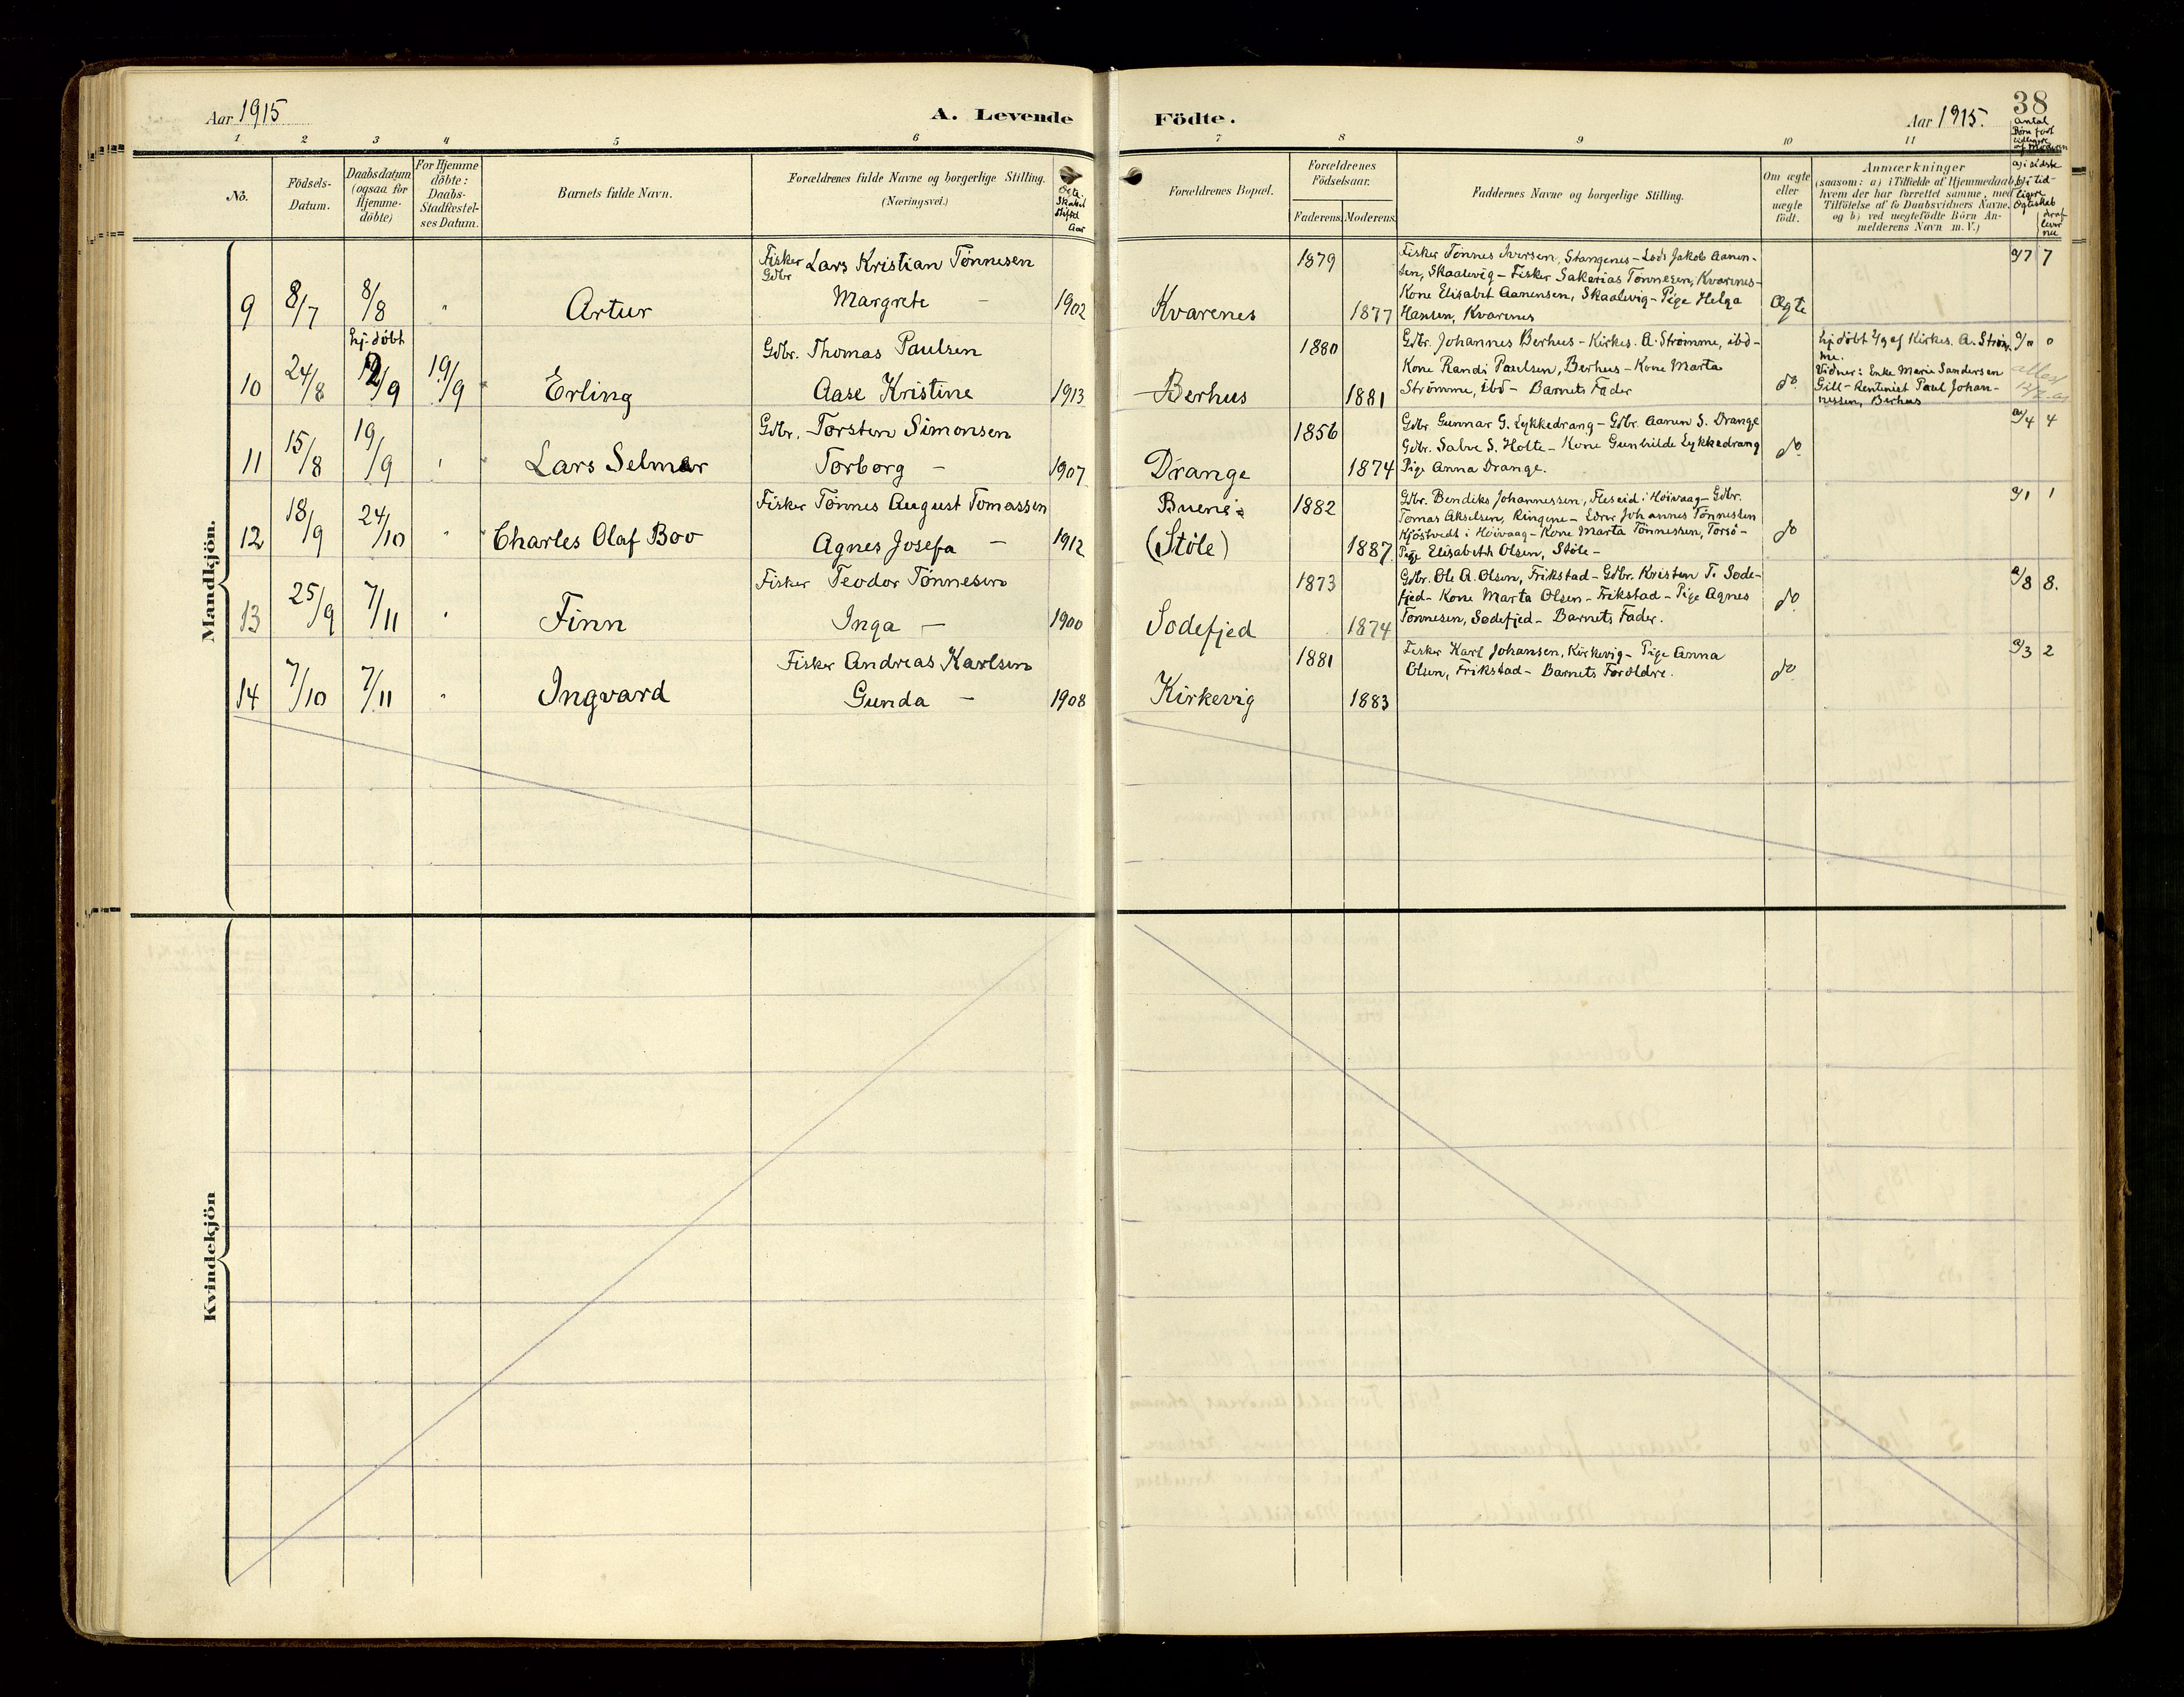 38
Aar 1915
A. Levende
Födte.
Aar 1915.
1 2 3 4 5 6
7 8 9 10 11
No.
Födsels-
Datum.
Daabsdatum
(ogsaa for
Hjemme-
döbte)
For Hjemme
döbte:
Daabs-
Stadfæstel-
ses Datum.
Barnets fulde Navn.
Forældrenes fulde Navne og borgerlige Stilling.
(Næringsvei.)
Ægte-
skabet
stiftet
Aar
Forældrenes Bopæl.
Forældrenes
Födselsaar.
Faderens. Moderens.
Faddernes Navne og borgerlige Stilling.
Om ægte
eller
uægte
födt.
Anmærkninger
(saasom: a) i Tilfælde af Hjemmedaab,
hvem der har forrettet samme, med
Tilföielse af to Daabsvidners Navne,
og b) ved uægtefödte Börn An-
melderens Navn m. V.)
Antal
Børn født
tidligere
af Moderen
a) i sidste
b) i tid-
ligere
Ægteskab
deraf
lever
nu
Mandkjön.
9
8/7
8/8
"
Artur
Fisker Lars Kristian Tönnesen
Gdbr
Margrete —
1902
Kvarenes
1879
1877
Fisker Tönnes Iversen, Stangenes - Lods Jakob Aanen-
sen, Skaalevig - Fisker Sakarias Tönnesen, Kvarenes-
Kone Elisabet Aanensen, Skaalevig - Pige Helga
Hansen, Kvarenes
Ægte
a/7 7
10
24/8
hj. döbt
2/9
19/9
Erling
Gdbr. Thomas Paulsen
Aase Kristine
1913
Berhus
1880
1881
Gdbr. Johannes Berhus - Kirkes. A. Strömme, ibd -
Kone Randi Paulsen, Berhus - Kone Marta
Strömme, ibd - Barnets Fader
do
hj. döbt 2/9 af Kirkes. A. Ström-
me.
Vidner: Enke Marie Sandersen
Gill - Rentenist Paul Johan-
nessen, Berhus
a/0 0
11
15/8
19/9
Lars Selmer
Gdbr. Torsten Simonsen
Torborg —
1907
Drange
1856
1874
Gdbr. Gunnar G. Lykkedrang - Gdbr. Aanen S. Drange
Gdbr. Salve S. Holte - Kone Gunhilde Lykkedrang
Pige Anna Drange.
do
a/4 4
12
18/9
24/10
"
Charles Olaf Boo
Fisker Tönnes August Tomassen
Agnes Josefa —
1912
Buene
(Støle)
1882
1887.
Gdbr. Bendiks Johannessen, Fleseid i Höivaag - Gdbr.
Tomas Akselsen, Ringene - Johannes Tönnessen
Kjöstvedt i Höivaag - Kone Marta Tönnessen, Torsö -
Pige Elisabeth Olsen, Støle -
do
a/1 1
13
25/9
7/11
"
Finn
Fisker Teodor Tönnesen
Inga —
1900
Sodefjed
1873
1874
Gdbr. Ole A. Olsen, Frikstad - Gdbr. Kristen T. Sode-
fjed - Kone Marta Olsen - Frikstad - Pige Agnes
Tönnesen, Sodefjed - Barnets Fader.
do
a/8 8.
14
7/10
7/11
"
Ingvard
Fisker Andreas Karlsen
Gunda —
1908
Kirkevig
1881
1883
Fisker Karl Johansen, Kirkevig - Pige Anna
Olsen, Frikstad - Barnets Forældre.
do
a/3 2
Kvindekjön